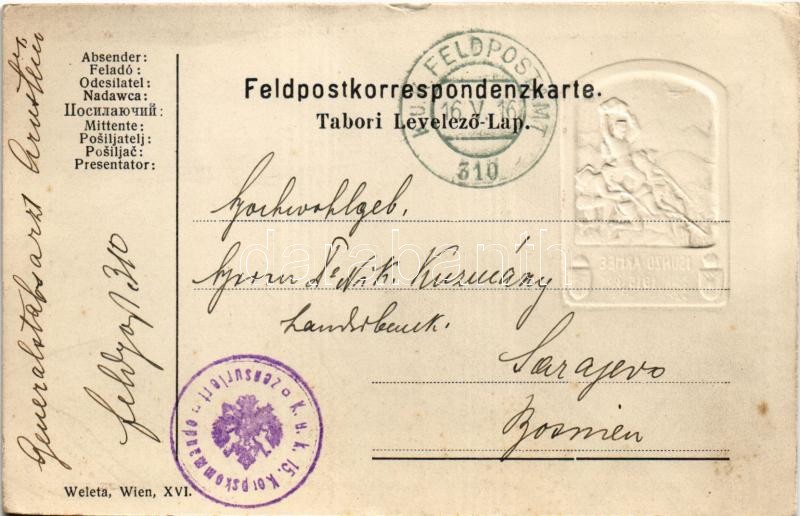 Absender:
Feladó:
Odesilatel:
Nadawca:
Посилаючий:
Mittente:
Pošiljatelj:
Pošiljač:
Presentator:
Generalstabsarzt
Feldpost 310
Feldpostkorrespondenzkarte.
Tabori Levelező-Lap.
K.u.K. FELDPOSTAMT
16.V.16
310
ISONZO ARMEE
Hochwohlgeb.
Herrn Dr Nik. Kuzmány
Landesbank.
Sarajevo
Bosnien
K. u. k. 15. Korpskommando
Zensuriert
Weleta, Wien, XVI.
darabanth